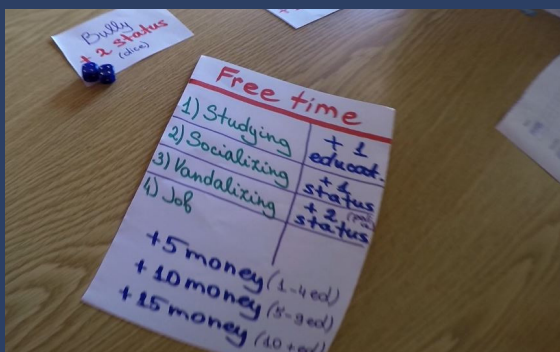 Bully
+ 2 status
(dice)
Free time
1) Studying
+ 1
educat.
2) Socializing
+ 1
status
3) Vandalizing
+ 2
status
4) Job
+5 money (1-4 ed)
+10 money (5-9 ed)
+15 money (10+ed)